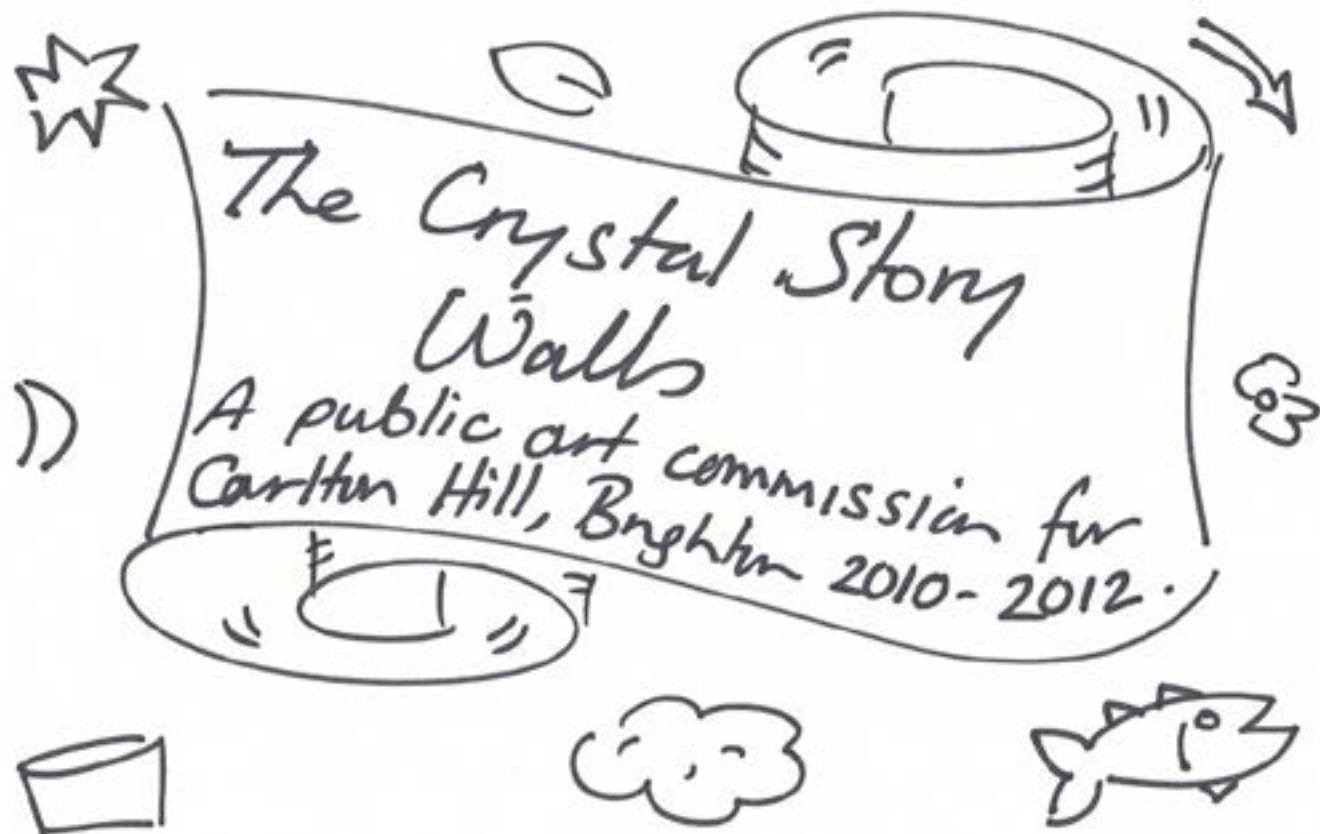 The Crystal Story
Walls
A public art commission for
Carlton Hill, Brighton 2010-2012.